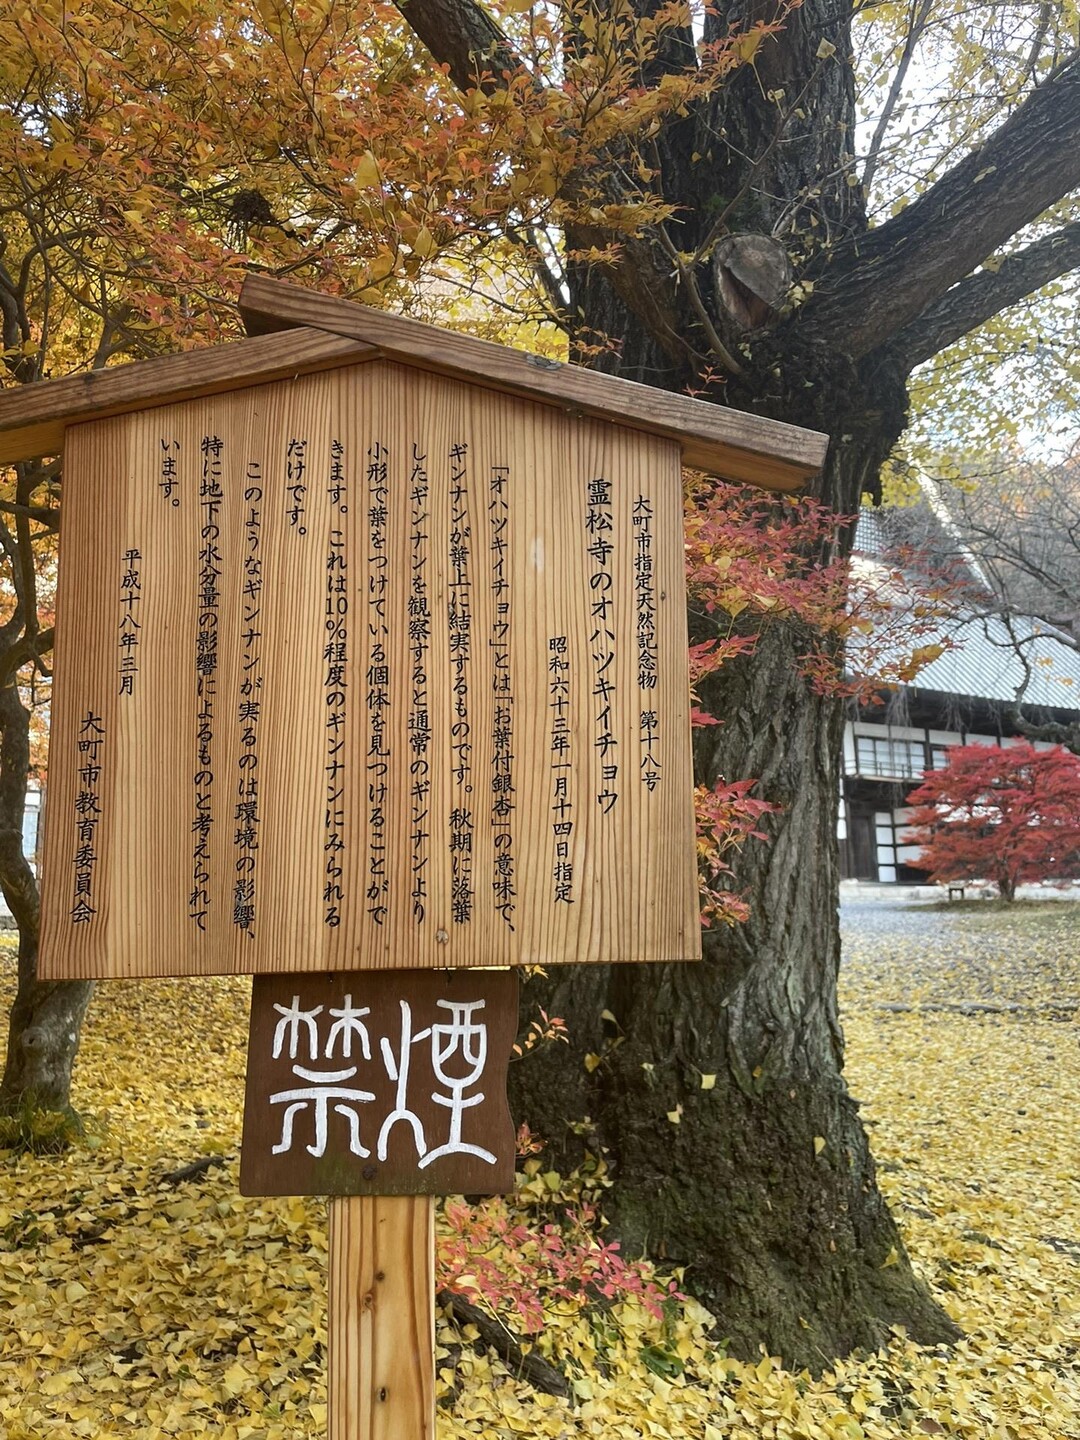 大町市指定天然記念物　第十八号
霊松寺のオハツキイチョウ
昭和六十三年一月十四日指定
「オハツキイチョウ」とは「お葉付銀杏」の意味で、
ギンナンが葉上に結実するものです。秋期に落葉
したギンナンを観察すると通常のギンナンより
小形で葉をつけている個体を見つけることがで
きます。これは10％程度のギンナンにみられる
だけです。
このようなギンナンが実るのは環境の影響、
特に地下の水分量の影響によるものと考えられて
います。
平成十八年三月
大町市教育委員会
禁煙